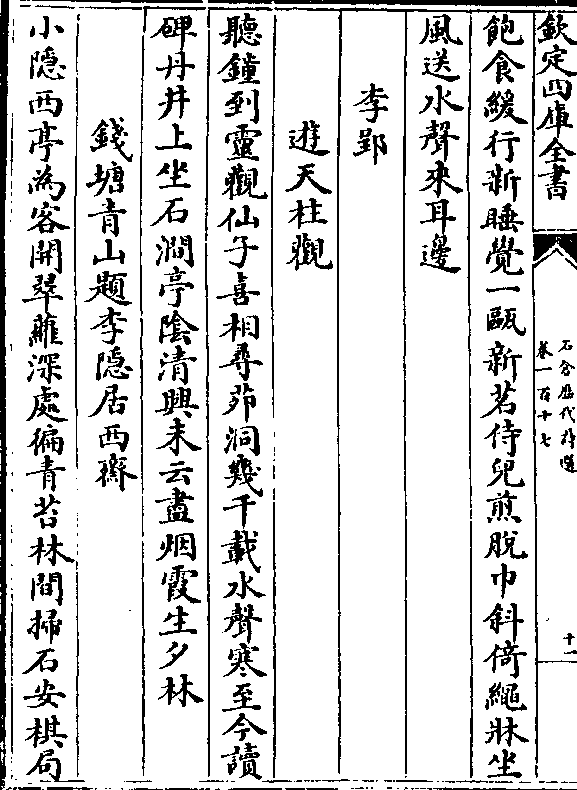 欽定四庫全書
石倉歷代詩選
卷一百十七
十一
飽食緩行新睡覺一甌新茗侍兒煎脫巾斜倚繩牀坐
風送水聲來耳邊
李郢
遊天柱觀
聽鐘到靈觀仙子喜相尋茆洞幾千載水聲寒至今讀
碑丹井上坐石澗亭陰清興未云盡烟霞生夕林
錢塘青山題李隱居西齋
小隱西亭為客開翠蘿深處徧青苔林間掃石安棋局